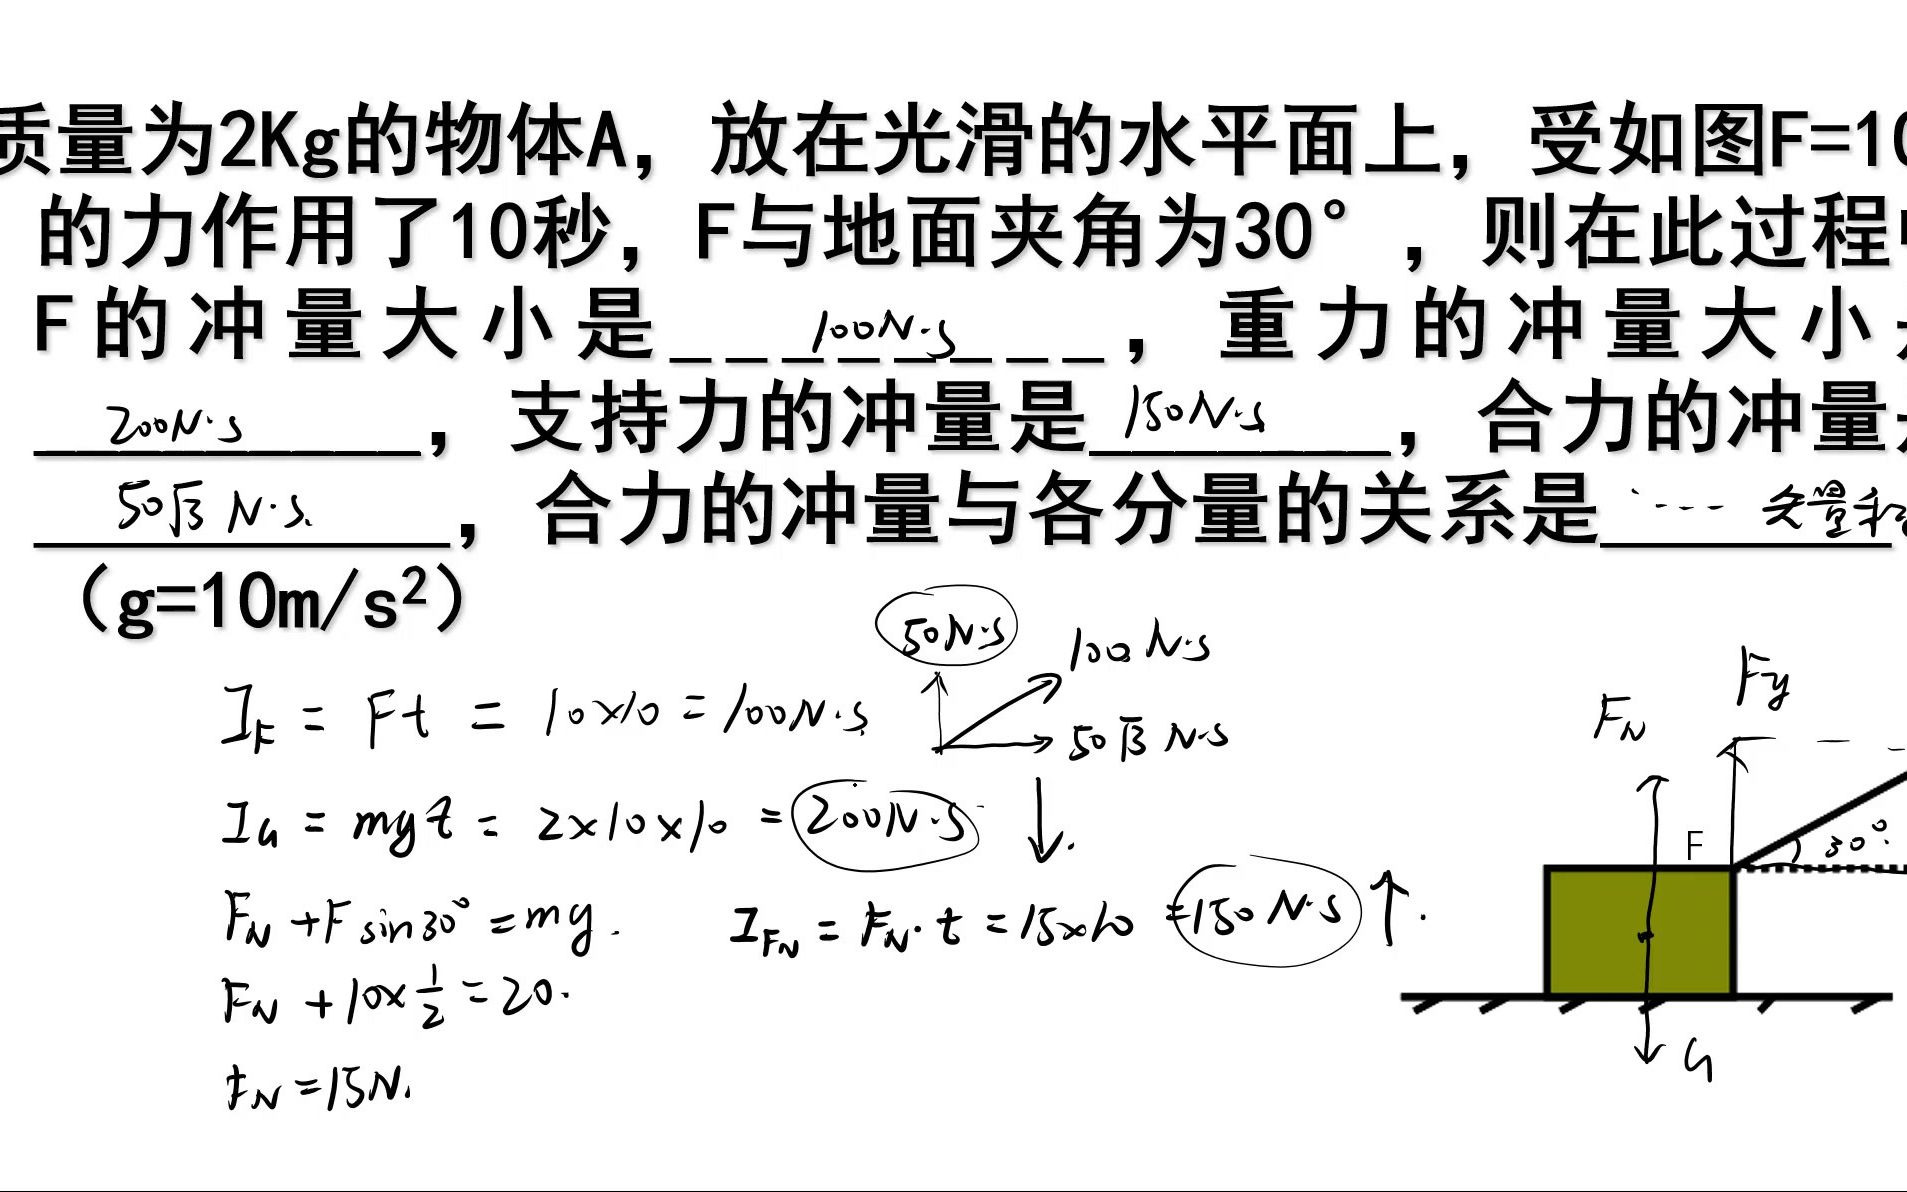 质量为2Kg的物体A，放在光滑的水平面上，受如图F=10
的力作用了10秒，F与地面夹角为30°，则在此过程中
F的冲量大小是 100N·s ，重力的冲量大小
200N·s ，支持力的冲量是 150N·s ，合力的冲量
50√3 N·s. ，合力的冲量与各分量的关系是 ···· 矢量和
（g=10m/s²）
50N·s
100 N·s
50√3 N·s
I_F = Ft = 10×10 = 100N·s
I_G = mgt = 2×10×10 = 200N·s
F_N + F sin30° = mg.
I_FN = F_N·t = 15×10 = 150 N·s
F_N + 10×1/2 = 20.
F_N = 15N.
F_N
Fy
F
30°
G